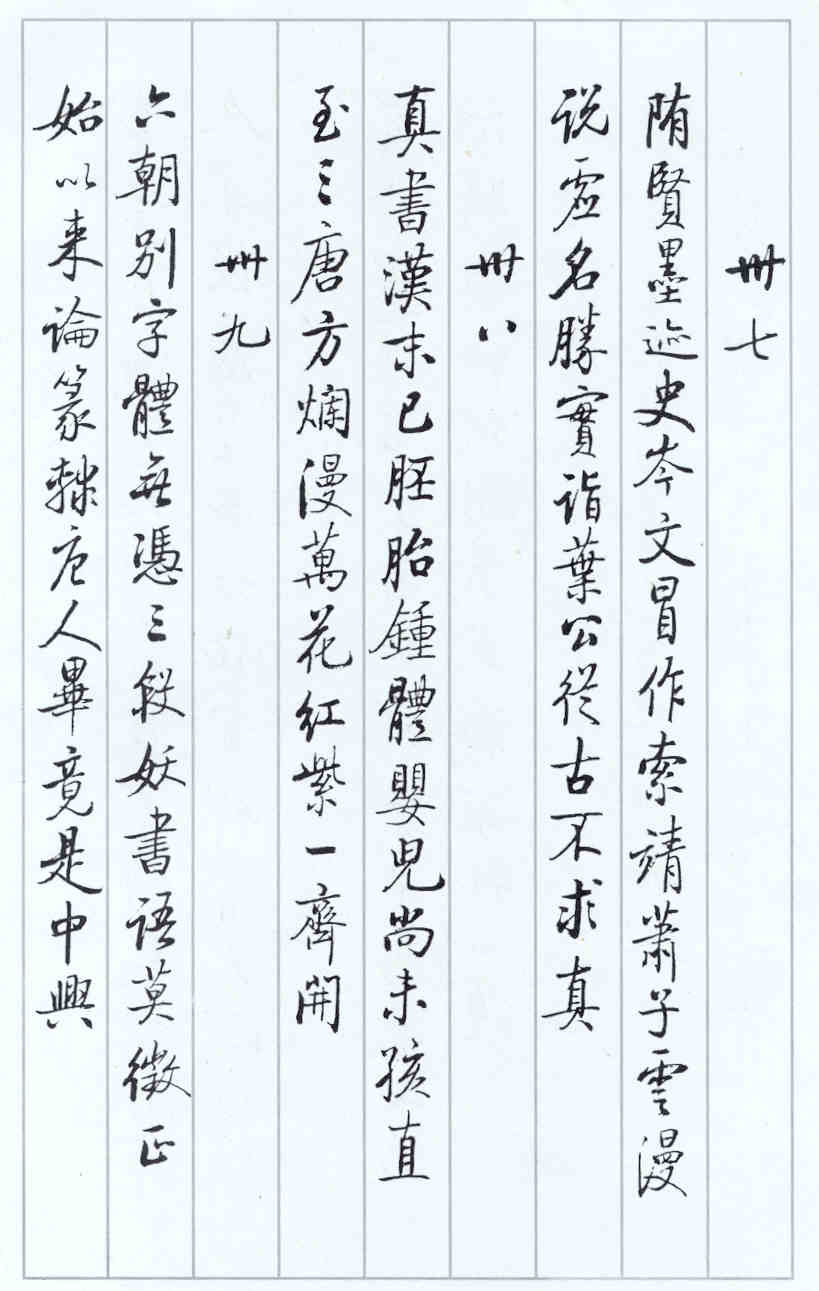 卅七
隋賢墨迹史岑文冒作索靖蕭子雲漫
说虚名勝實詣葉公從古不求真
卅八
真書漢末已胚胎鍾體嬰兒尚未孩直
至三唐方爛漫萬花红紫一齊開
卅九
六朝别字體無憑三段妖書語莫徵正
始以来論篆隸唐人畢竟是中興